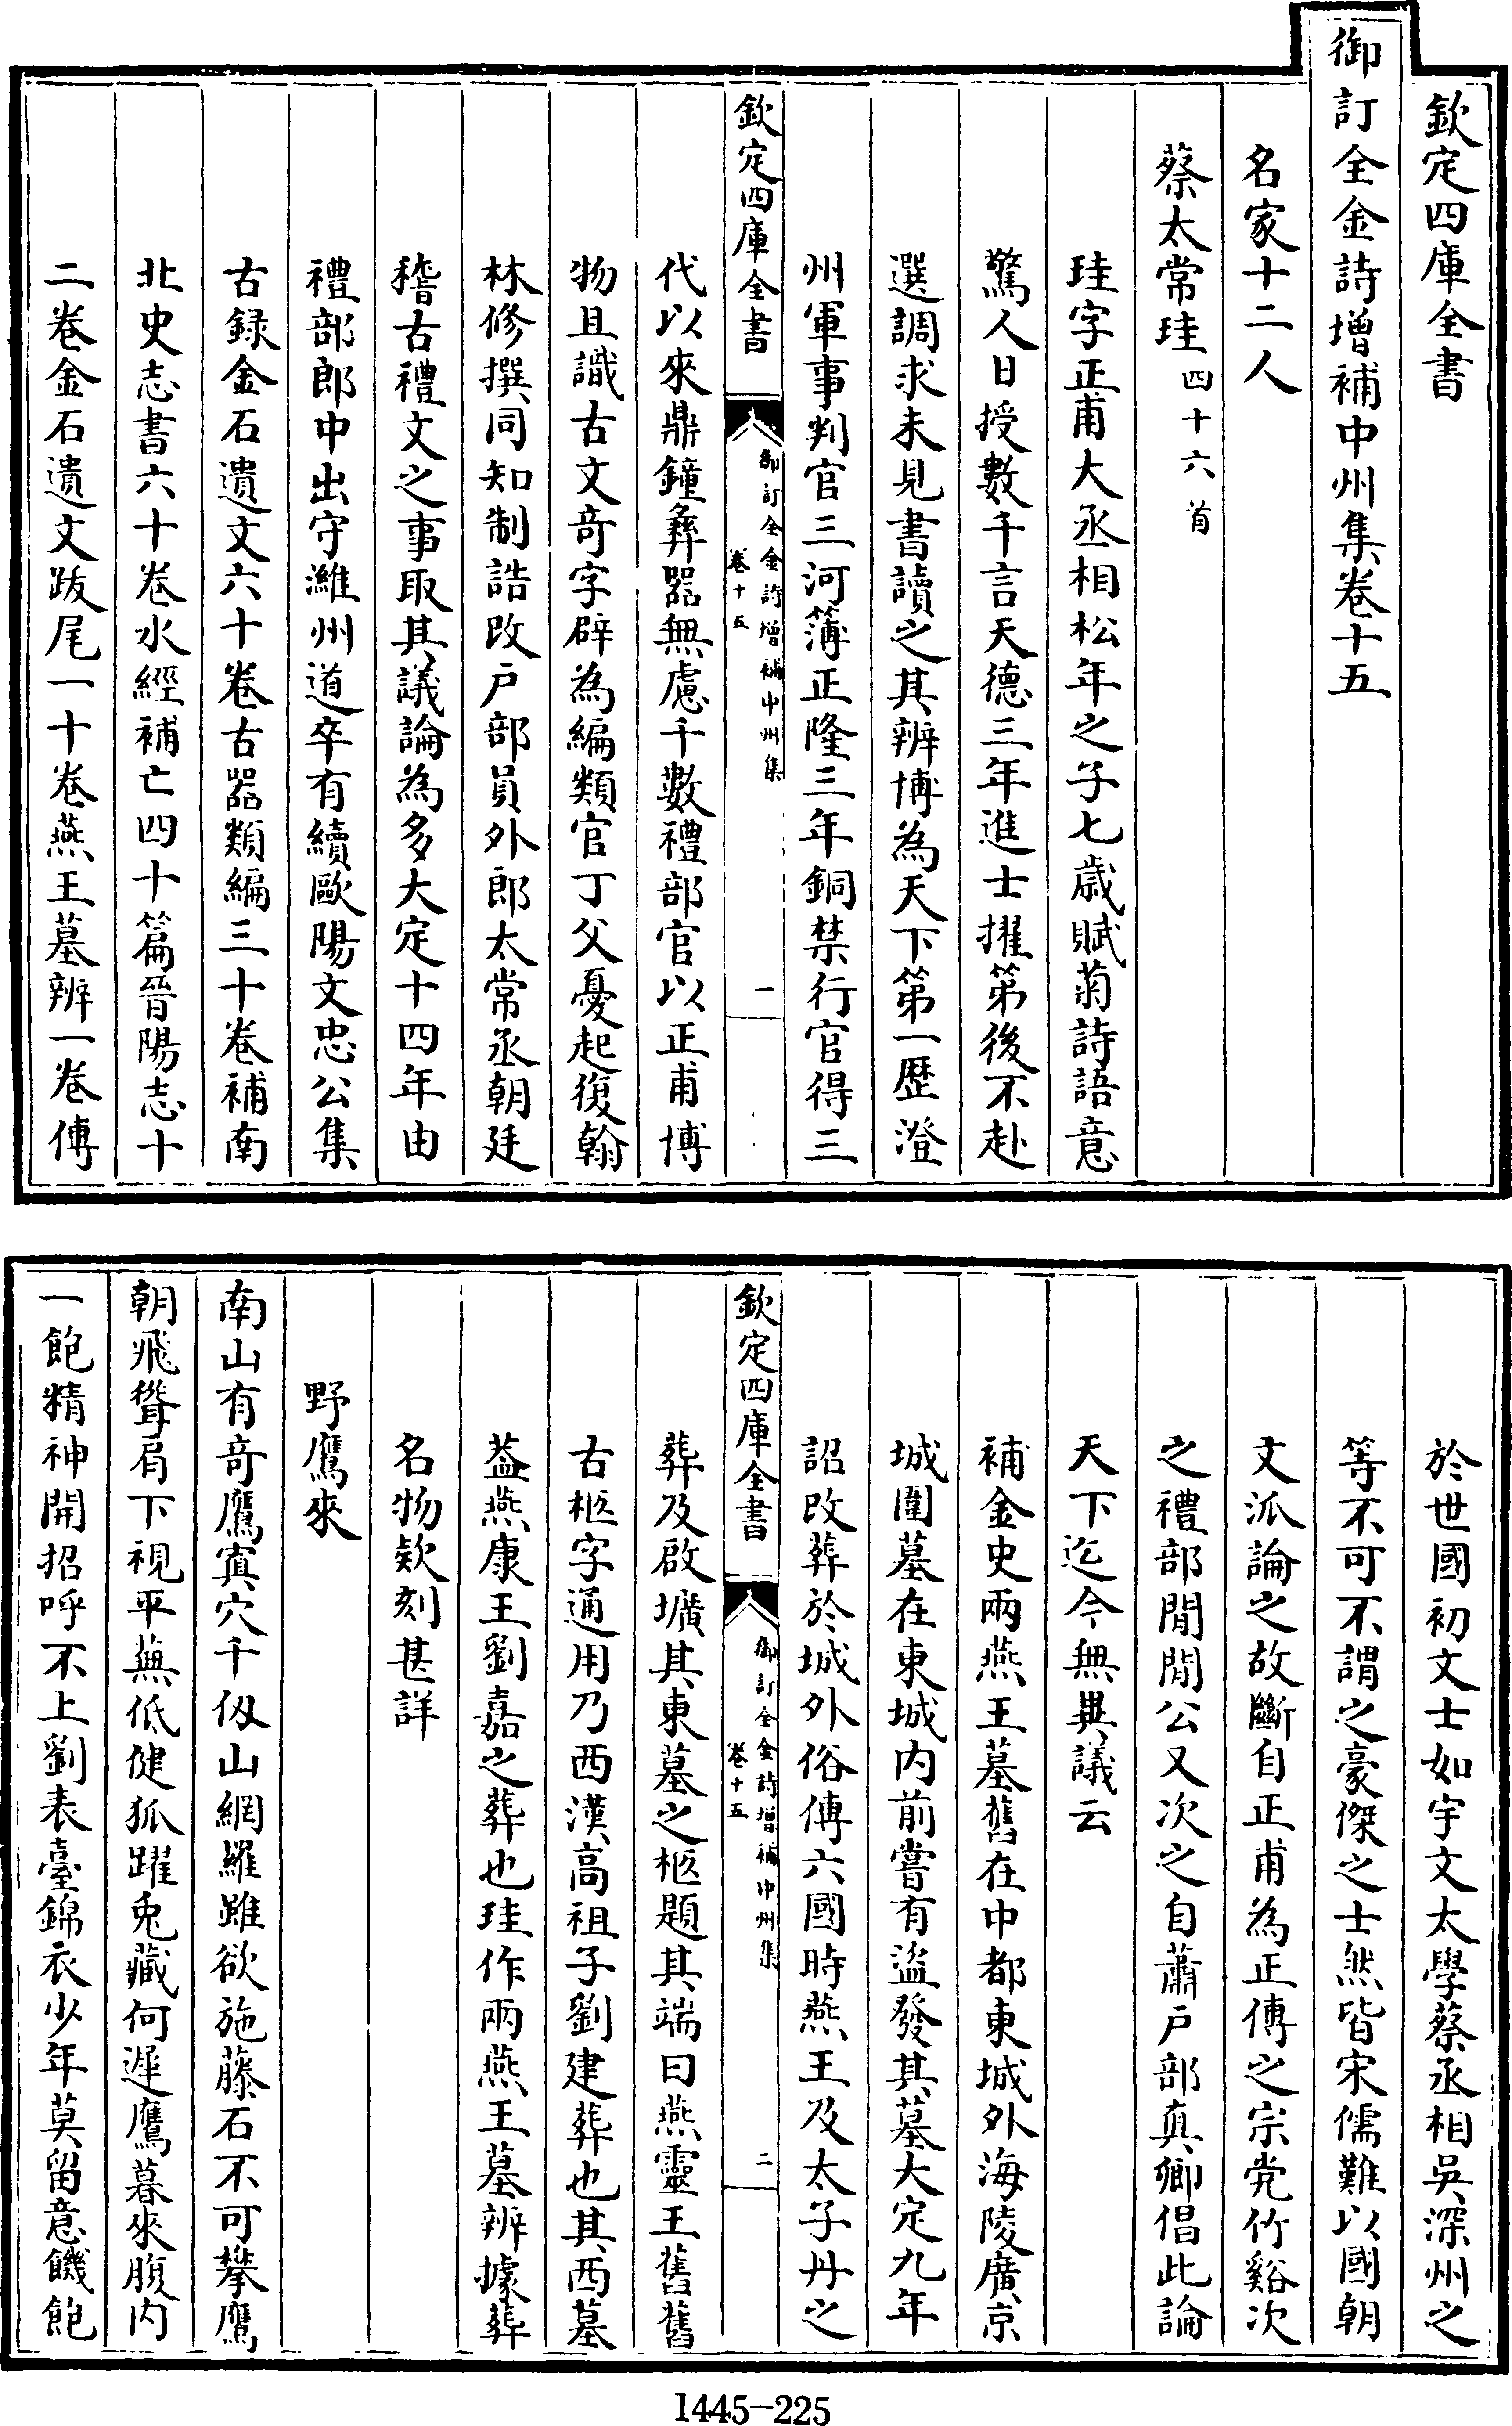 欽定四庫全書
御訂全金詩增補中州集卷十五
名家十二人
蔡太常珪四十六首
珪字正甫大丞相松年之子七歲賦菊詩語意
驚人日授數千言天德三年進士擢第後不赴
選調求未見書讀之其辨博為天下第一歷澄
州軍事判官三河簿正隆三年銅禁行官得三
欽定四庫全書
御訂全金詩增補中州集
卷十五
一
代以來鼎鐘彝器無慮千數禮部官以正甫博
物且識古文奇字辟為編類官丁父憂起復翰
林修撰同知制誥改戶部員外郎太常丞朝廷
稽古禮文之事取其議論為多大定十四年由
禮部郎中出守濰州道卒有續歐陽文忠公集
古録金石遺文六十卷古器類編三十卷補南
北史志書六十卷水經補亡四十篇晉陽志十
二卷金石遺文跋尾一十卷燕王墓辨一卷傳
於世國初文士如宇文太學蔡丞相吳深州之
等不可不謂之豪傑之士然皆宋儒難以國朝
文派論之故斷自正甫為正傳之宗党竹谿次
之禮部閒閒公又次之自蕭戶部真卿倡此論
天下迄今無異議云
補金史兩燕王墓舊在中都東城外海陵廣京
城圍墓在東城内前嘗有盜發其墓大定九年
詔改葬於城外俗傳六國時燕王及太子丹之
欽定四庫全書
御訂全金詩增補中州集
卷十五
二
葬及啟壙其東墓之柩題其端曰燕靈王舊舊
古柩字通用乃西漢高祖子劉建葬也其西墓
葢燕康王劉嘉之葬也珪作兩燕王墓辨據葬
名物欵刻甚詳
野鷹來
南山有奇鷹寘穴千仭山網羅雖欲施藤石不可攀鷹
朝飛聳肩下視平蕪低健狐躍兎藏何遲鷹暮來腹内
一飽精神開招呼不上劉表臺錦衣少年莫留意饑飽
1445-225